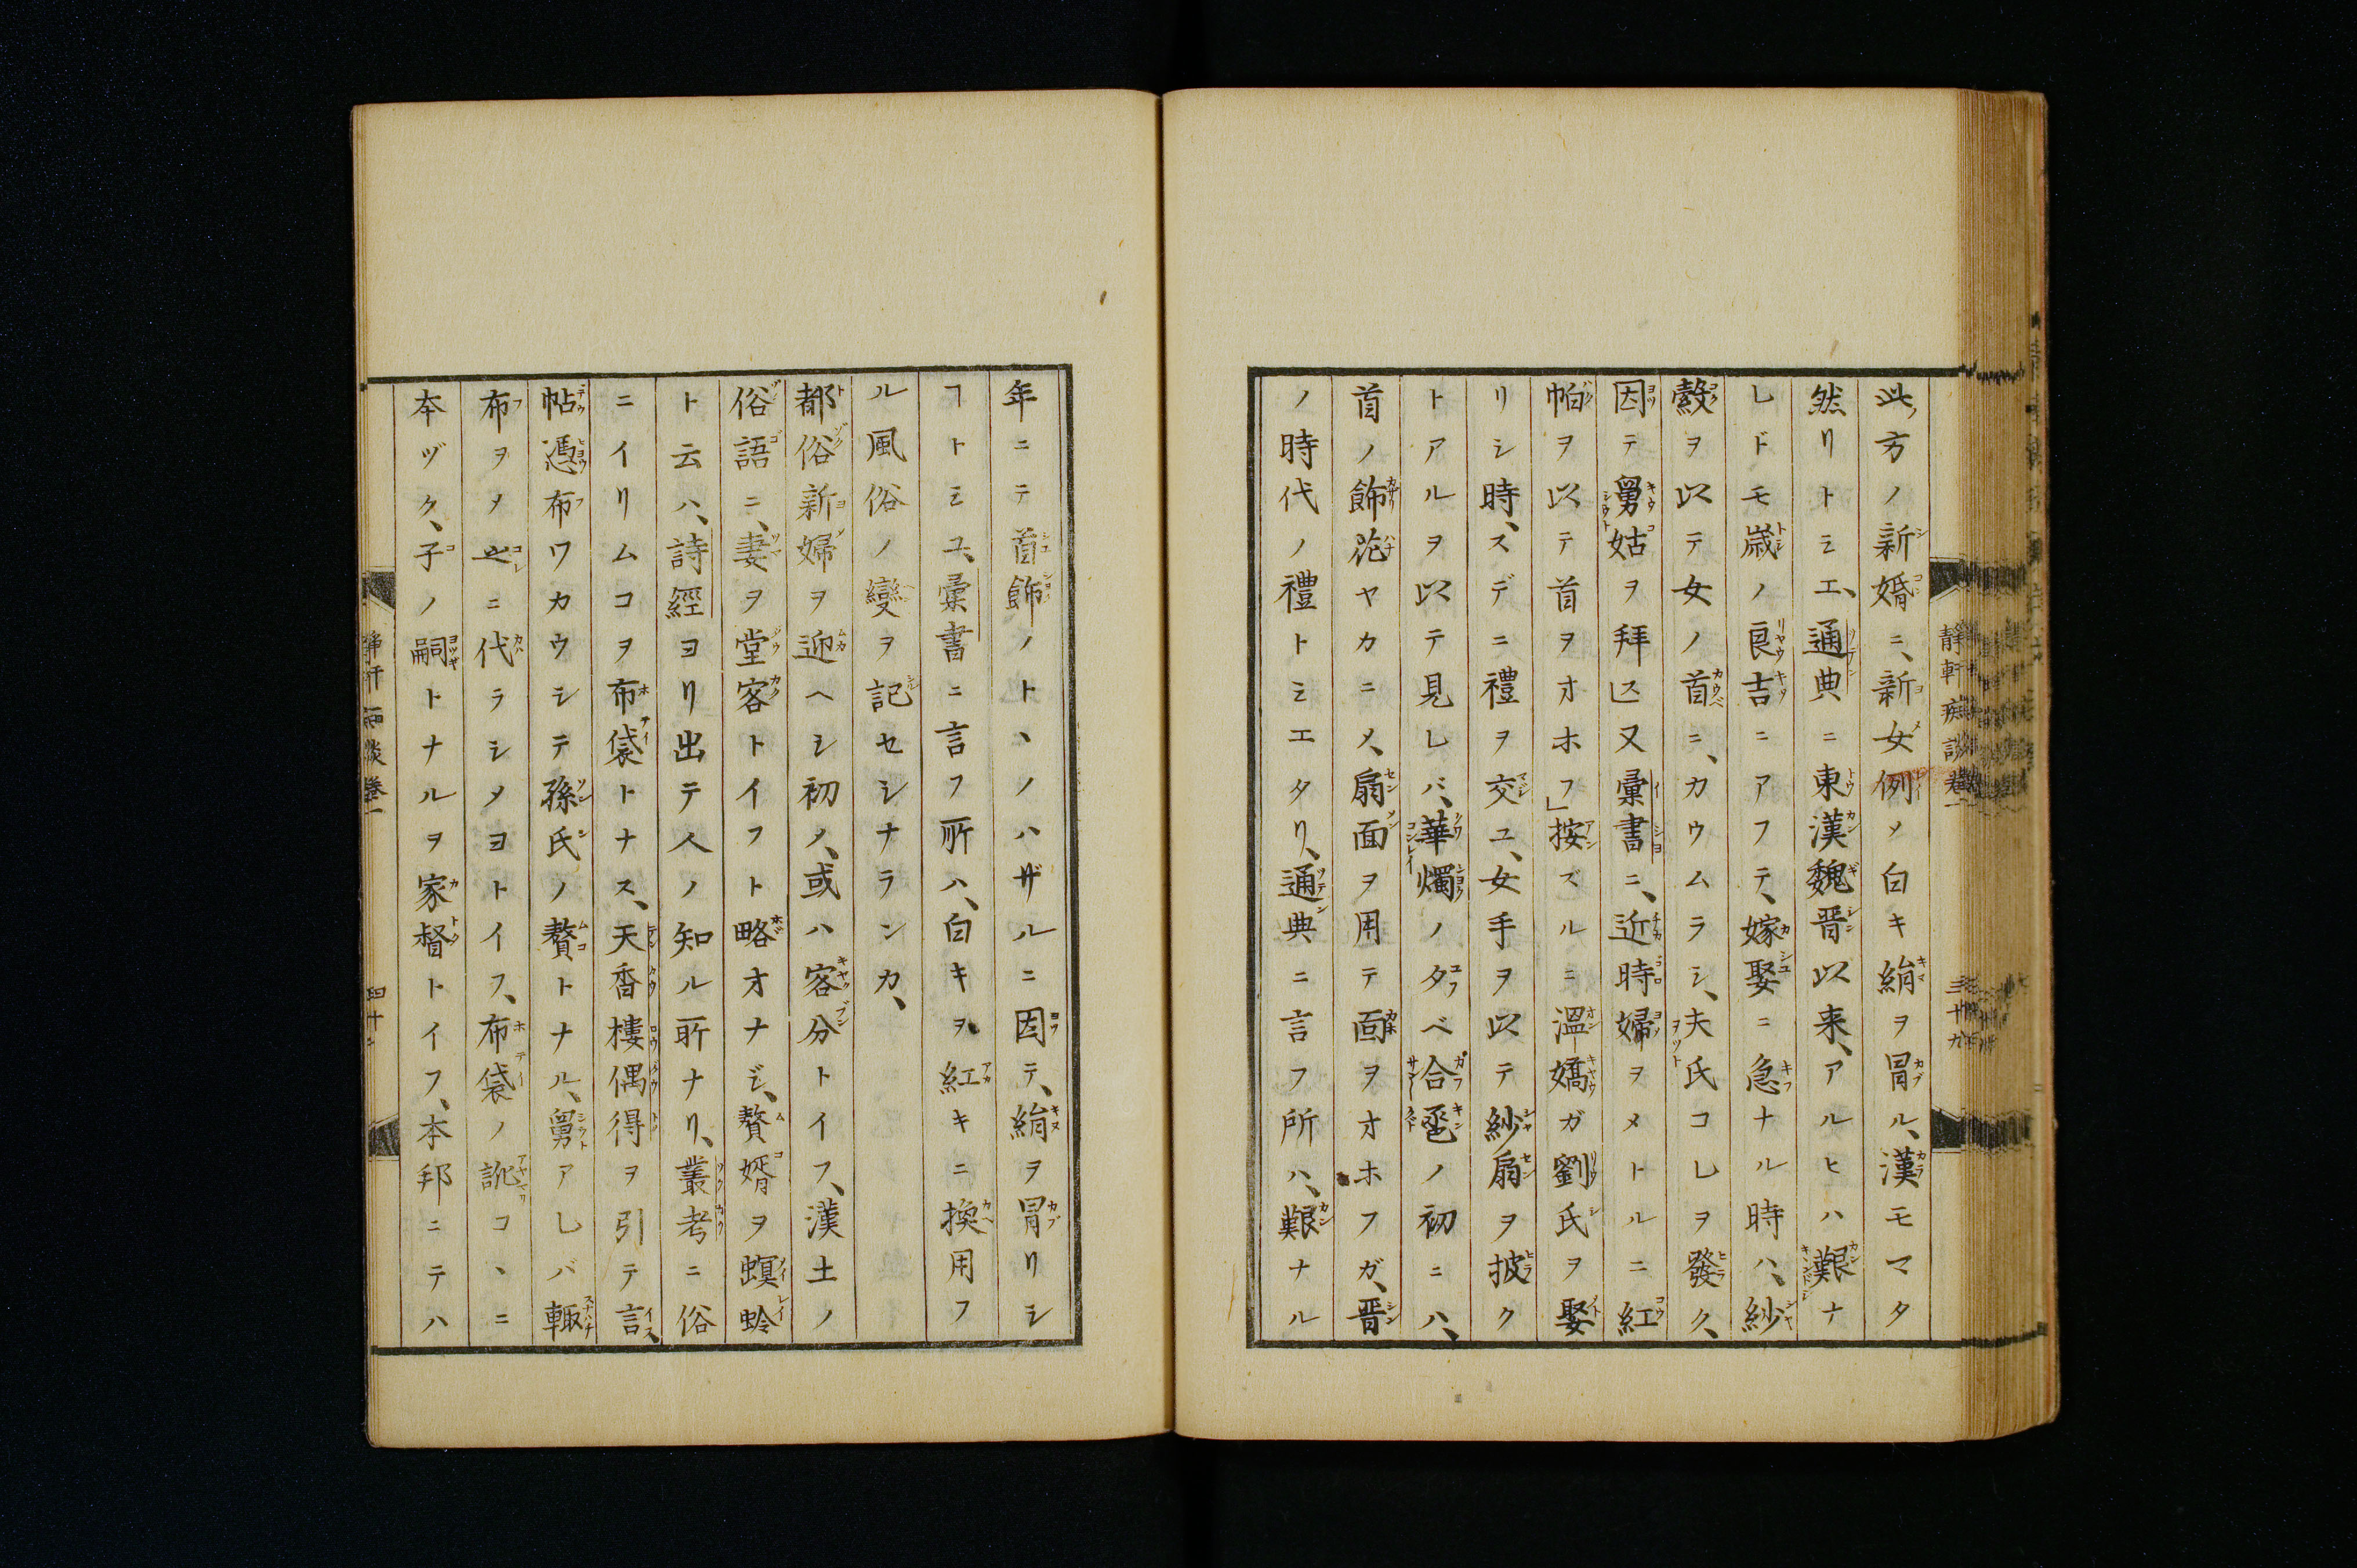 此方ノ新婚ニ、新女例メ白キ絹ヲ冐ル、漢モマタ
然リトミエ、通典ニ東漢魏晋以来、アルヒハ艱ナ
レドモ歳ノ良吉ニアフテ、嫁娶ニ急ナル時ハ、紗
縠ヲ以テ女ノ首ニ、カウムラシ、夫氏コレヲ發ク、
因テ舅姑ヲ拜ス又彙書ニ、近時婦ヲメトルニ紅
帕ヲ以テ首ヲオホフ」按ズルニ溫嬌ガ劉氏ヲ娶
リシ時、スデニ禮ヲ交ユ、女手ヲ以テ紗扇ヲ披ク
トアルヲ以テ見レバ、華燭ノタベ合巹ノ初ニハ、
首ノ飾花ヤカニメ、扇面ヲ用テ面ヲオホフガ、晋
ノ時代ノ禮トミエタリ、通典ニ言フ所ハ、艱ナル
靜軒痴談卷一 三十九
年ニテ首飾ノトヽノハザルニ因テ、絹ヲ冐リシ
ヿトミユ、彙書ニ言フ所ハ、白キヲ紅キニ換用フ
ル風俗ノ變ヲ記セシナランカ、
都俗新婦ヲ迎ヘシ初ノ、或ハ客分トイフ、漢土ノ
俗語ニ、妻ヲ堂客トイフト略オナジ、贅婿ヲ螟蛉
ト云ハ、詩經ヨリ出テ人ノ知ル所ナリ、叢考ニ俗
ニイリムコヲ布袋トナス、天香樓偶得ヲ引テ言、
帖憑布ワカウシテ孫氏ノ贅トナル、舅アレバ輙
布ヲメ之ニ代ラシメヨトイフ、布袋ノ訛コヽニ
本ヅク、子ノ嗣トナルヲ家督トイフ、本邦ニテハ
靜軒痴談卷一 四十